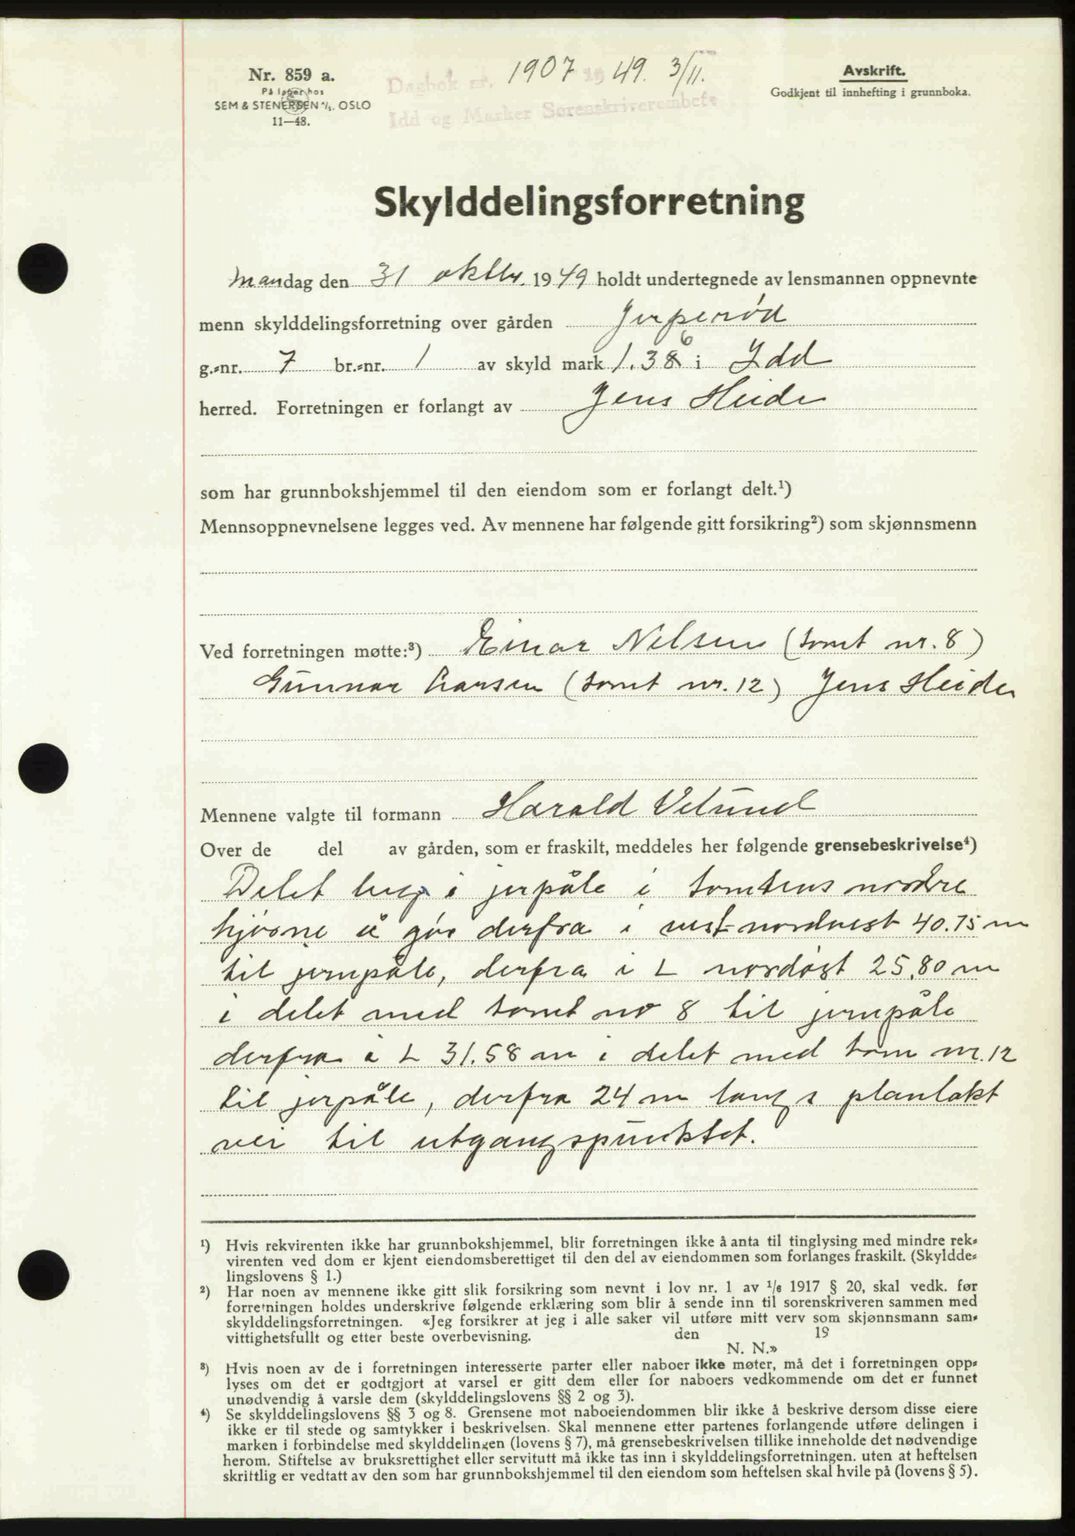 Nr. 859 a.
På lager hos
SEM & STENERSEN A/S. OSLO
11—48.
Dagbok nr. 1907 19 49. 3/11.
Idd og Marker Sorenskriverembete
Avskrift.
Godkjent til innhefting i grunnboka.
Skylddelingsforretning
Mandag den 31 oktbr. 1949 holdt undertegnede av lensmannen oppnevnte
menn skylddelingsforretning over gården Jerperød
g.-nr. 7 br.-nr. 1 av skyld mark 1.386 i Idd
herred. Forretningen er forlangt av Jens Heider
som har grunnbokshjemmel til den eiendom som er forlangt delt.¹)
Mennsoppnevnelsene legges ved. Av mennene har følgende gitt forsikring²) som skjønnsmenn
Ved forretningen møtte:³) Einar Nilsen (tomt nr. 8)
Gunnar Larsen (tomt nr. 12) Jens Heider
Mennene valgte til formann Harald Velund
Over de del av gården, som er fraskilt, meddeles her følgende grensebeskrivelse⁴)
Delet beg. i jerpåle i tomtens nordre
hjørne å går derfra i vest-nordvest 40.75 m
til jernpåle, derfra i L nordøst 25.80 m
i delet med tomt no 8 til jernpåle
derfra i L 31.58 m i delet med tom nr. 12
til jerpåle, derfra 24 m langs planlakt
vei til utgangspunktet.
¹) Hvis rekvirenten ikke har grunnbokshjemmel, blir forretningen ikke å anta til tinglysing med mindre rek-
virenten ved dom er kjent eiendomsberettiget til den del av eiendommen som forlanges fraskilt. (Skyldde-
lingslovens § 1.)
²) Har noen av mennene ikke gitt slik forsikring som nevnt i lov nr. 1 av 1/6 1917 § 20, skal vedk. før
forretningen holdes underskrive følgende erklæring som blir å sende inn til sorenskriveren sammen med
skylddelingsforretningen. «Jeg forsikrer at jeg i alle saker vil utføre mitt verv som skjønnsmann sam-
vittighetsfullt og etter beste overbevisning. den 19
N. N.»
³) Hvis noen av de i forretningen interesserte parter eller naboer ikke møter, må det i forretningen opp-
lyses om det er godtgjort at varsel er gitt dem eller for naboers vedkommende om det er funnet
unødvendig å varsle dem (skylddelingslovens §§ 2 og 3).
⁴) Se skylddelingslovens §§ 3 og 8. Grensene mot naboeiendommen blir ikke å beskrive dersom disse eiere
ikke er til stede og samtykker i beskrivelsen. Skal mennene etter partenes forlangende utføre delingen i
marken i forbindelse med skylddelingen (lovens § 7), må grensebeskrivelsen tillike inneholde det nødvendige
herom. Stiftelse av bruksrettighet eller servitutt må ikke tas inn i skylddelingsforretningen, uten at heftelsen
skriftlig er vedtatt av den som har grunnbokshjemmel til den eiendom som heftelsen skal hvile på (lovens § 5).